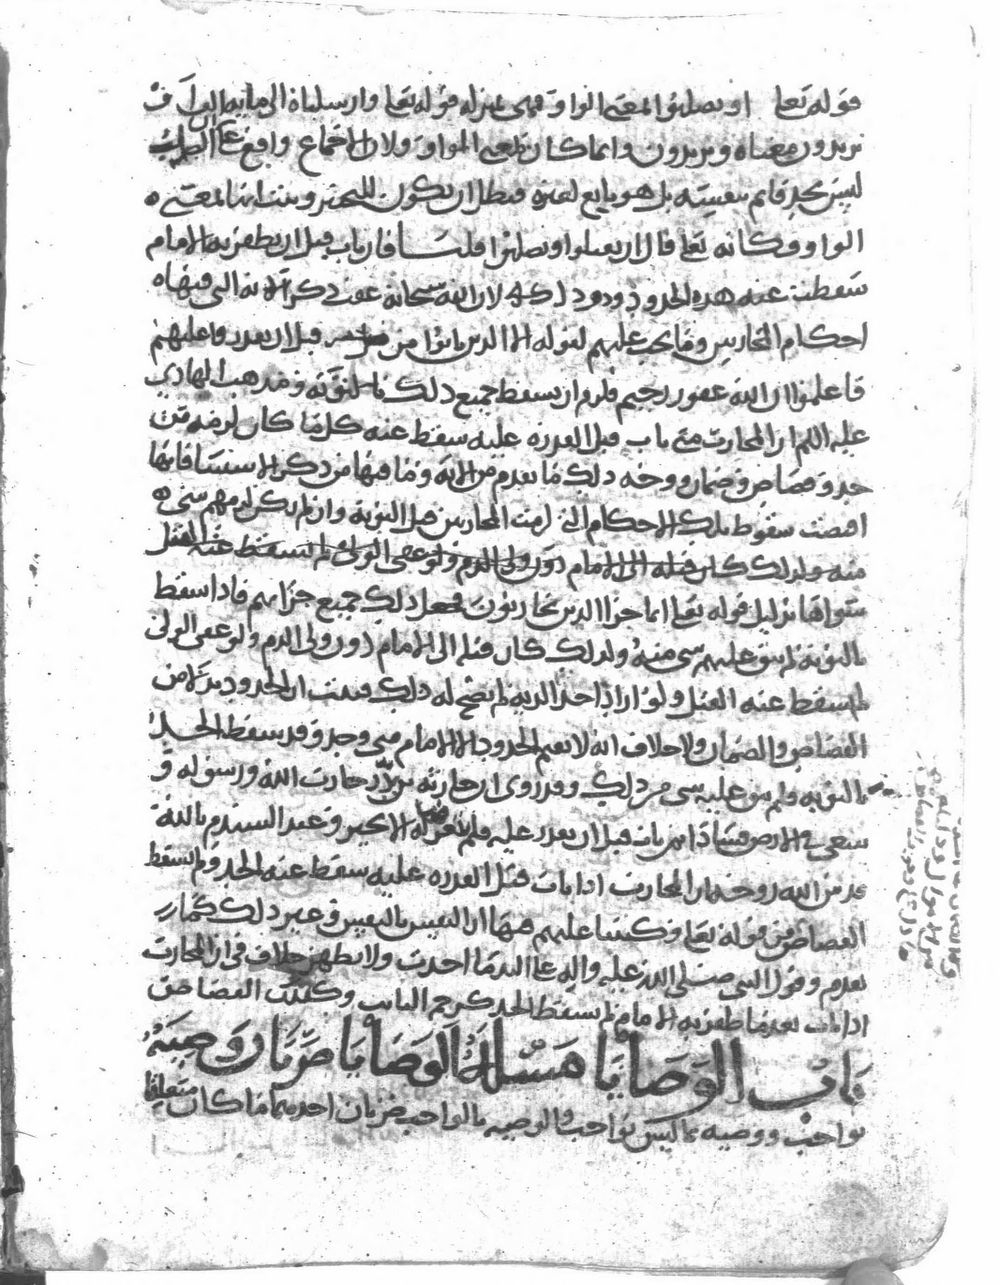 قوله تعالى او يصلبوا بمعنى الواو فهي بمنزلة قوله تعالى وارسلناه الى ماية الف او
يزيدون معناه ويزيدون وانما كانت بمعنى الواو ولان الاجماع واقع على ان الصلب
ليس بحد قايم بنفسه بل هو تابع لغيره فبطل ان يكون للتخيير وثبت انها بمعنى
الواو وكانه تعالى قال ان يقتلوا ويصلبوا قلنا فان تاب قبل ان يظفر به الامام
سقطت عنه هذه الحدود وذلك لان الله سبحانه عقب ذكر الاية التي فيها
احكام المحاربين وما يجب عليهم بقوله الا الذين تابوا من قبل ان تقدروا عليهم
فاعلموا ان الله غفور رحيم فلزم ان يسقط جميع ذلك بالتوبة ومذهب الهادي
عليه السلم ان المحارب متى تاب قبل القدرة عليه سقط عنه كل ما كان لزمه من
حد وقصاص وضمان ووجه ذلك ما تقدم من الاية وما فيها من ذكر الاستثنا فانها
اقتضت سقوط تلك الاحكام التي لزمت المحاربين قبل التوبة وان لم يكن لزمهم شي
منه ولذلك كان قتله الى الامام دون ولي الدم ولو عفى الولي لم يسقط عنه القتل
سواها بدليل قوله تعالى انما جزا الذين يحاربون فجعل ذلك جميع جزايهم فاذا سقط
بالتوبة لم يبق عليهم شي منه ولذلك كان قتله الى الامام دون ولي الدم ولو عفى الولي
لم يسقط عنه القتل ولو اراد اخذ الدية لم يصح له ذلك فثبت ان الحدود بدلا من
القصاص والضمان ولا خلاف انه لا يقيم الحدود الا الامام وقد سقط الحد
بالتوبة ولم يبق عليه شي من ذلك وقد روى ان حارثة بن بدر حارب الله ورسوله و
سعى في الارض فسادا ثم تاب قبل ان يقدر عليه فلم يعرض له الا بخير وعند السيد م بالله
قدس الله روحه ان المحارب اذا تاب قبل القدرة عليه سقط عنه الحد ولم يسقط
القصاص من قوله تعالى وكتبنا عليهم فيها ان النفس بالنفس وغير ذلك كما
تقدم وقول النبي صلى الله عليه واله على اليد ما اخذت ولا يظهر خلاف في ان المحارب
اذا تاب بعد ما ظفر به الامام لم يسقط الحد كرجم التايب وكذلك القصاص
باب الوصايا مسالة الوصايا ضربان وصية
بواجب ووصية بما ليس بواجب والوصية بالواجب ضربان احدهما ما كان متعلقا